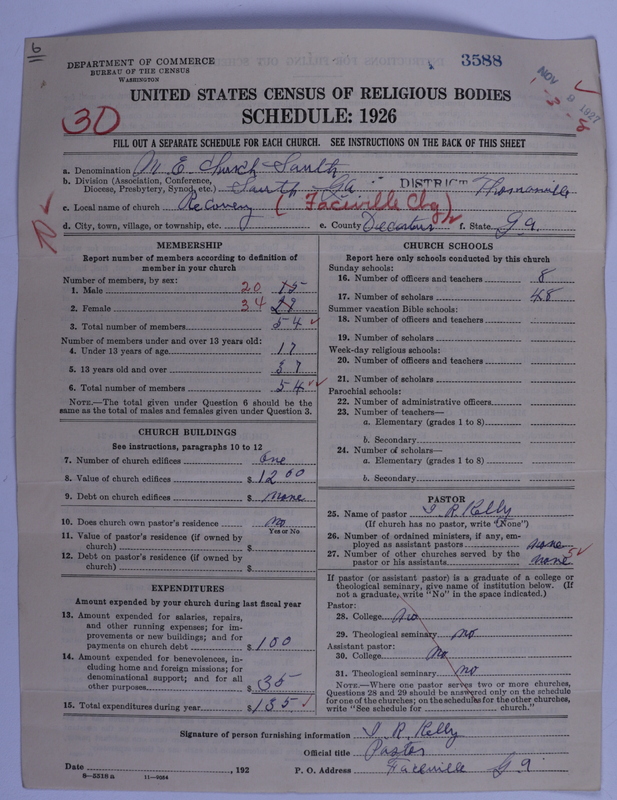 6
DEPARTMENT OF COMMERCE
BUREAU OF THE CENSUS
WASHINGTON
3588
NOV 9 1927
UNITED STATES CENSUS OF RELIGIOUS BODIES
SCHEDULE: 1926
30
FILL OUT A SEPARATE SCHEDULE FOR EACH CHURCH. SEE INSTRUCTIONS ON THE BACK OF THIS SHEET
a. Denomination M E Church South
b. Division (Association, Conference, Diocese, Presbytery, Synod, etc.) South Ga DISTRICT Thomasville
c. Local name of church Recovery (Faceville Chg)
d. City, town, village, or township, etc. e. County Decatur f. State Ga.
MEMBERSHIP
Report number of members according to definition of
member in your church
Number of members, by sex:
1. Male 20 15
2. Female 34 29
3. Total number of members 54
Number of members under and over 13 years old:
4. Under 13 years of age 17
5. 13 years old and over 37
6. Total number of members 54
NOTE.—The total given under Question 6 should be the
same as the total of males and females given under Question 3.
CHURCH BUILDINGS
See instructions, paragraphs 10 to 12
7. Number of church edifices One
8. Value of church edifices $ 1200
9. Debt on church edifices $ none
10. Does church own pastor's residence no
Yes or No
11. Value of pastor's residence (if owned by
church) $
12. Debt on pastor's residence (if owned by
church) $
EXPENDITURES
Amount expended by your church during last fiscal year
13. Amount expended for salaries, repairs,
and other running expenses; for im-
provements or new buildings; and for
payments on church debt $ 100
14. Amount expended for benevolences, in-
cluding home and foreign missions; for
denominational support; and for all
other purposes $ 35
15. Total expenditures during year $ 135
CHURCH SCHOOLS
Report here only schools conducted by this church
Sunday schools:
16. Number of officers and teachers 8
17. Number of scholars 48
Summer vacation Bible schools:
18. Number of officers and teachers
19. Number of scholars
Week-day religious schools:
20. Number of officers and teachers
21. Number of scholars
Parochial schools:
22. Number of administrative officers
23. Number of teachers—
a. Elementary (grades 1 to 8)
b. Secondary
24. Number of scholars—
a. Elementary (grades 1 to 8)
b. Secondary
PASTOR
25. Name of pastor I. R. Kelly
(If church has no pastor, write "None")
26. Number of ordained ministers, if any, em-
ployed as assistant pastors none
27. Number of other churches served by the
pastor or his assistants none 5
If pastor (or assistant pastor) is a graduate of a college or
theological seminary, give name of institution below. (If
not a graduate, write "No" in the space indicated.)
Pastor:
28. College no
29. Theological seminary no
Assistant pastor:
30. College no
31. Theological seminary no
NOTE.—Where one pastor serves two or more churches,
Questions 28 and 29 should be answered only on the schedule
for one of the churches; on the schedules for the other churches,
write "See schedule for church."
Signature of person furnishing information I. R. Kelly
Official title Pastor
Date , 192 P. O. Address Faceville Ga
8—5518 a 11—9064